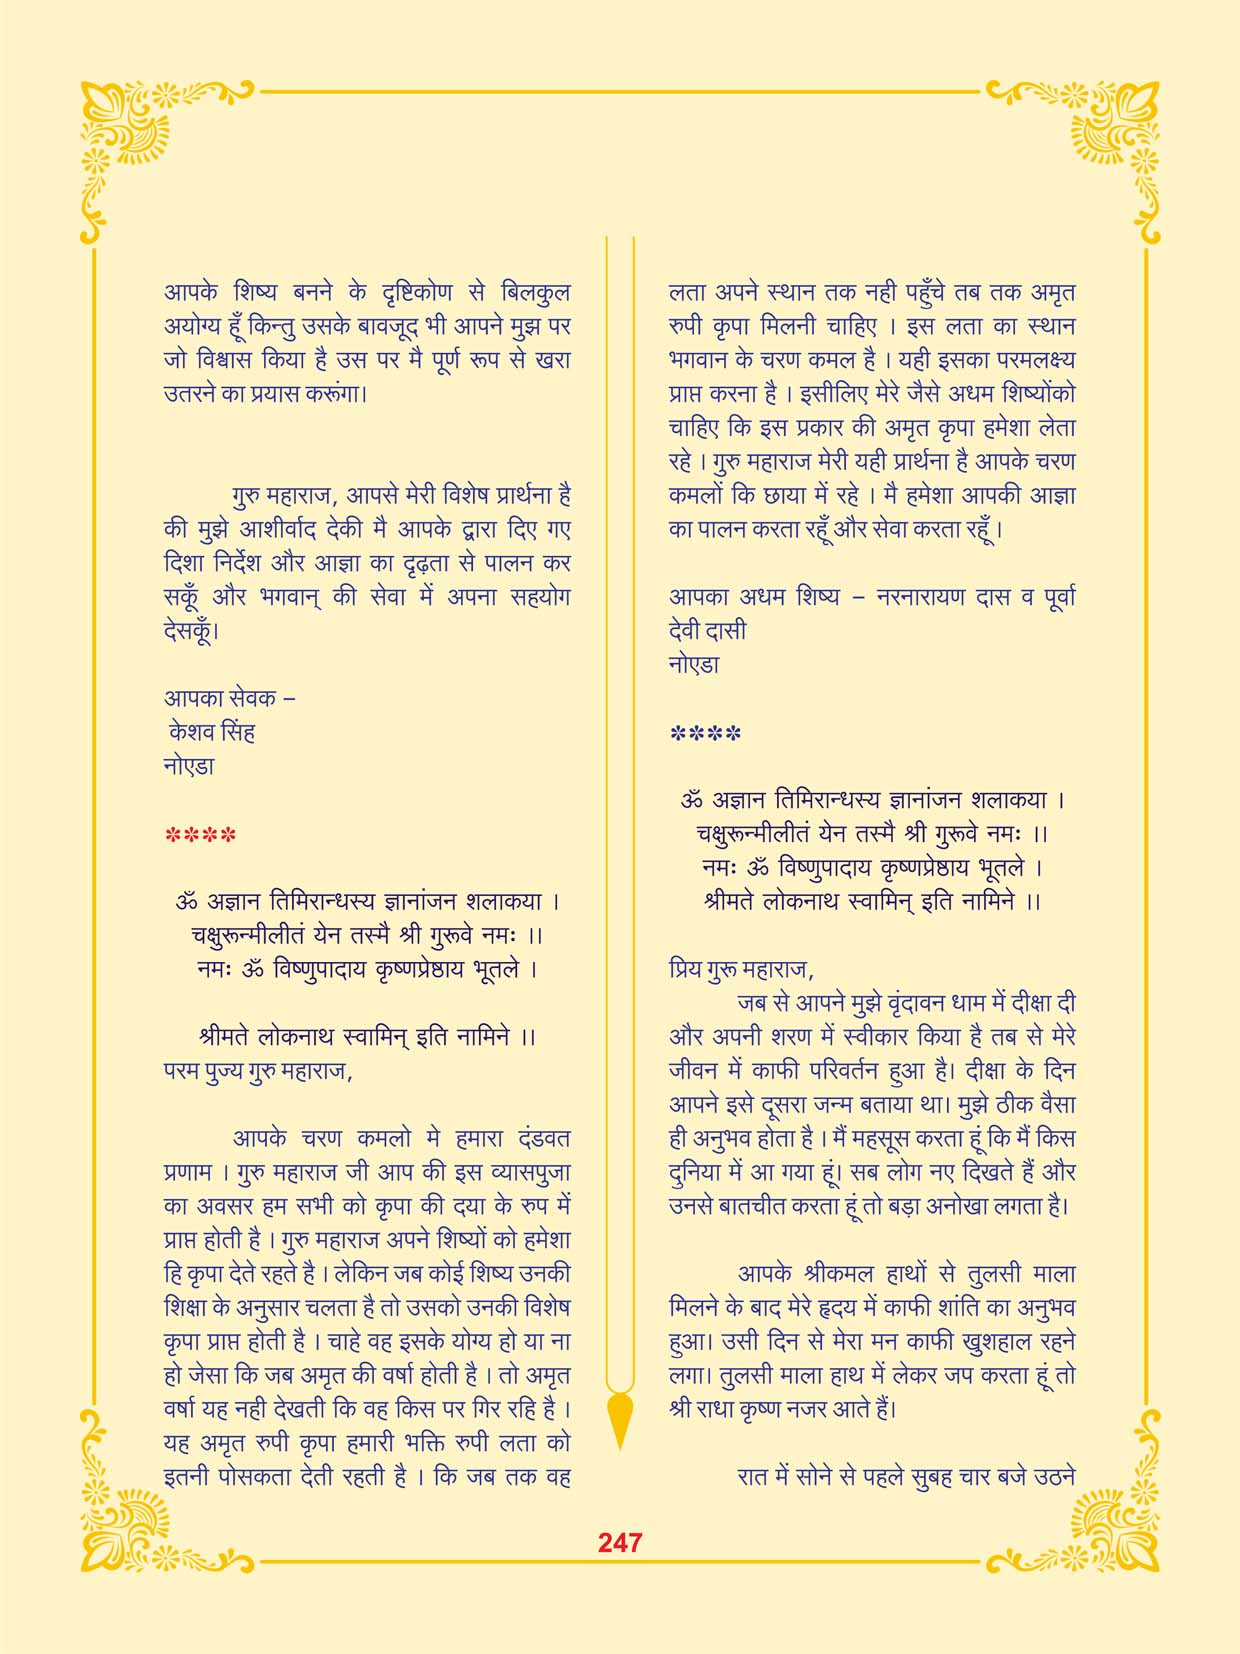 आपके शिष्य बनने के दृष्टिकोण से बिलकुल
अयोग्य हूँ किन्तु उसके बावजूद भी आपने मुझ पर
जो विश्वास किया है उस पर मै पूर्ण रूप से खरा
उतरने का प्रयास करूंगा।
गुरु महाराज, आपसे मेरी विशेष प्रार्थना है
की मुझे आशीर्वाद देकी मै आपके द्वारा दिए गए
दिशा निर्देश और आज्ञा का दृढ़ता से पालन कर
सकूँ और भगवान् की सेवा में अपना सहयोग
देसकूँ।
आपका सेवक –
केशव सिंह
नोएडा
****
ॐ अज्ञान तिमिरान्धस्य ज्ञानांजन शलाकया ।
चक्षुरून्मीलीतं येन तस्मै श्री गुरूवे नमः ।।
नमः ॐ विष्णुपादाय कृष्णप्रेष्ठाय भूतले ।
श्रीमते लोकनाथ स्वामिन् इति नामिने ।।
परम पुज्य गुरु महाराज,
आपके चरण कमलो मे हमारा दंडवत
प्रणाम । गुरु महाराज जी आप की इस व्यासपुजा
का अवसर हम सभी को कृपा की दया के रुप में
प्राप्त होती है । गुरु महाराज अपने शिष्यों को हमेशा
हि कृपा देते रहते है । लेकिन जब कोई शिष्य उनकी
शिक्षा के अनुसार चलता है तो उसको उनकी विशेष
कृपा प्राप्त होती है । चाहे वह इसके योग्य हो या ना
हो जेसा कि जब अमृत की वर्षा होती है । तो अमृत
वर्षा यह नही देखती कि वह किस पर गिर रहि है ।
यह अमृत रुपी कृपा हमारी भक्ति रुपी लता को
इतनी पोसकता देती रहती है । कि जब तक वह
लता अपने स्थान तक नही पहुँचे तब तक अमृत
रुपी कृपा मिलनी चाहिए । इस लता का स्थान
भगवान के चरण कमल है । यही इसका परमलक्ष्य
प्राप्त करना है । इसीलिए मेरे जैसे अधम शिष्योंको
चाहिए कि इस प्रकार की अमृत कृपा हमेशा लेता
रहे । गुरु महाराज मेरी यही प्रार्थना है आपके चरण
कमलों कि छाया में रहे । मै हमेशा आपकी आज्ञा
का पालन करता रहूँ और सेवा करता रहूँ ।
आपका अधम शिष्य – नरनारायण दास व पूर्वा
देवी दासी
नोएडा
****
ॐ अज्ञान तिमिरान्धस्य ज्ञानांजन शलाकया ।
चक्षुरून्मीलीतं येन तस्मै श्री गुरूवे नमः ।।
नमः ॐ विष्णुपादाय कृष्णप्रेष्ठाय भूतले ।
श्रीमते लोकनाथ स्वामिन् इति नामिने ।।
प्रिय गुरू महाराज,
जब से आपने मुझे वृंदावन धाम में दीक्षा दी
और अपनी शरण में स्वीकार किया है तब से मेरे
जीवन में काफी परिवर्तन हुआ है। दीक्षा के दिन
आपने इसे दूसरा जन्म बताया था। मुझे ठीक वैसा
ही अनुभव होता है । मैं महसूस करता हूं कि मैं किस
दुनिया में आ गया हूं। सब लोग नए दिखते हैं और
उनसे बातचीत करता हूं तो बड़ा अनोखा लगता है।
आपके श्रीकमल हाथों से तुलसी माला
मिलने के बाद मेरे हृदय में काफी शांति का अनुभव
हुआ। उसी दिन से मेरा मन काफी खुशहाल रहने
लगा। तुलसी माला हाथ में लेकर जप करता हूं तो
श्री राधा कृष्ण नजर आते हैं।
रात में सोने से पहले सुबह चार बजे उठने
247